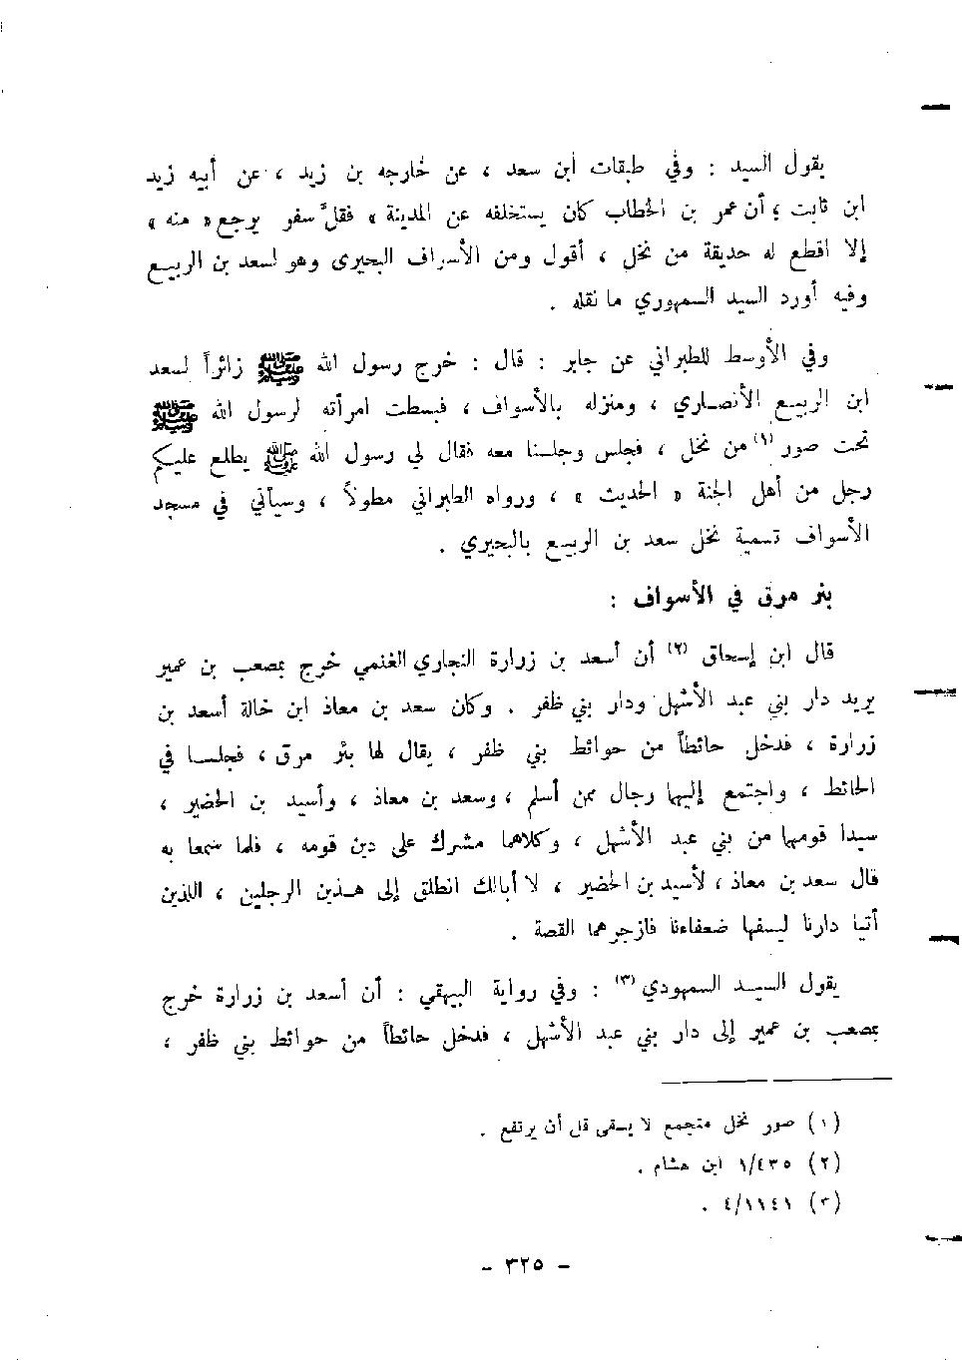 يقول السيد : وفي طبقات ابن سعد ، عن خارجه بن زيد ، عن أبيه زيد
ابن ثابت ؛ أن عمر بن الخطاب كان يستخلفه عن المدينة « فقلّ سفر يرجع « منه »
إلا اقطع له حديقة من نخل ، أقول ومن الأسراف البحيرى وهو لسعد بن الربيع
وفيه أورد السيد السمهوري ما نقله .
وفي الأوسط للطبراني عن جابر : قال : خرج رسول الله ﷺ زائراً لسعد
ابن الربيع الأنصاري ، ومنزله بالأسواف ، فبسطت امرأته لرسول الله ﷺ
تحت صور (١) من نخل ، فجلس وجلسنا معه فقال لي رسول الله ﷺ يطلع عليكم
رجل من أهل الجنة « الحديث » ، ورواه الطبراني مطولاً ، وسيأتي في مسجد
الأسواف تسمية نخل سعد بن الربيع بالبحيري .
بئر مرق في الأسواف :
قال ابن إسحاق (٢) أن أسعد بن زرارة النجاري الغنمي خرج بمصعب بن عمير
يريد دار بني عبد الأشهل ودار بني ظفر . وكان سعد بن معاذ ابن خالة أسعد بن
زرارة ، فدخل حائطاً من حوائط بني ظفر ، يقال لها بئر مرق ، فجلسا في
الحائط ، واجتمع إليهما رجال ممن أسلم ، وسعد بن معاذ ، وأسيد بن الحضير ،
سيدا قومهما من بني عبد الأشهل ، وكلاهما مشرك على دين قومه ، فلما سمعا به
قال سعد بن معاذ ، لأسيد بن الحضير ، لا أبالك انطلق إلى هذين الرجلين ، اللذين
أتيا دارنا ليسفها ضعفاءنا فازجرهما القصة .
يقول السيد السمهودي (٣) : وفي رواية البيهقي : أن أسعد بن زرارة خرج
بمصعب بن عمير إلى دار بني عبد الأشهل ، فدخل حائطاً من حوائط بني ظفر ،
(١) صور نخل متجمع لا يسقى قل أن يرتفع .
(٢) ١/٤٣٥ ابن هشام .
(٣) ٤/١١٤١ .
- ٣٢٥ -